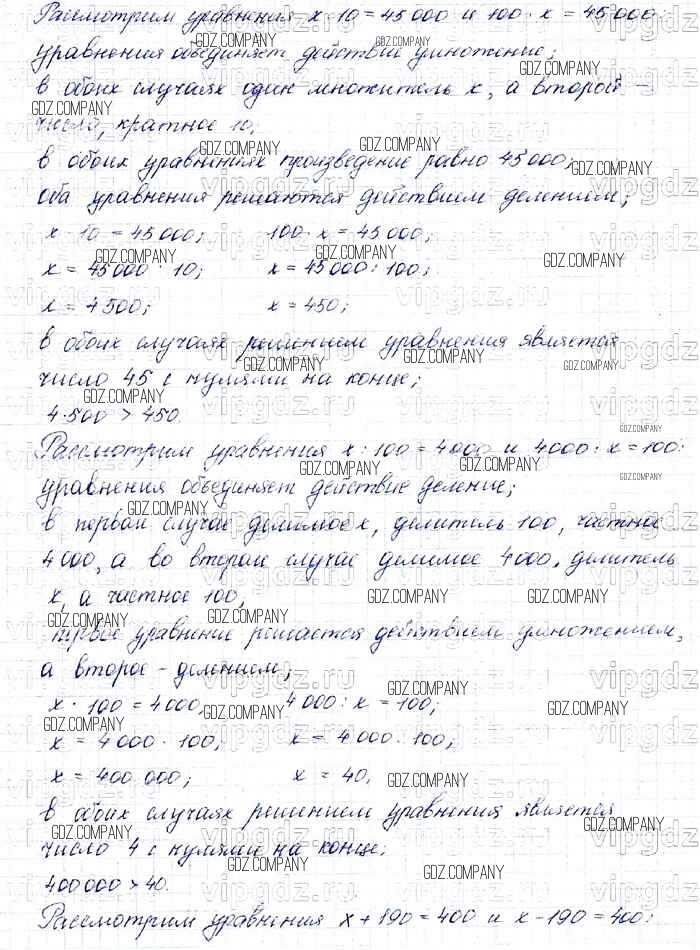 Рассмотрим уравнения x · 10 = 45 000 и 100 · x = 45 000:
уравнения объединяет действие умножение;
в обоих случаях один множитель x, а второй –
число, кратное 10;
в обоих уравнениях произведение равно 45 000;
оба уравнения решаются действием делением;
x · 10 = 45 000; 100 · x = 45 000;
x = 45 000 : 10; x = 45 000 : 100;
x = 4 500; x = 450;
в обоих случаях решением уравнения является
число 45 с нулями на конце;
4 500 > 450.
Рассмотрим уравнения x : 100 = 4 000 и 4 000 : x = 100:
уравнения объединяет действие деление;
в первом случае делимое x, делитель 100, частное
4 000, а во втором случае делимое 4 000, делитель
x, а частное 100;
первое уравнение решается действием умножением,
а второе – делением;
x · 100 = 4 000; 4 000 : x = 100;
x = 4 000 · 100; x = 4 000 : 100;
x = 400 000; x = 40.
в обоих случаях решением уравнения является
число 4 с нулями на конце;
400 000 > 40.
Рассмотрим уравнения x + 190 = 400 и x – 190 = 400:
GDZ.COMPANY
vipgdz.ru